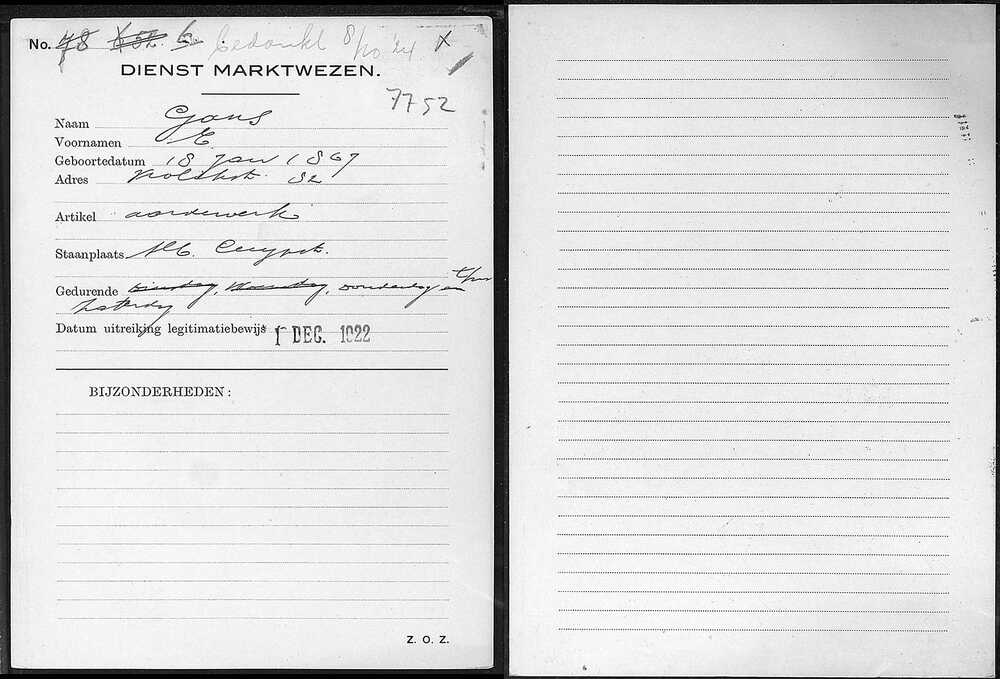 No. 78 6 Bedankt 8/10 '24 X
DIENST MARKTWEZEN.
7752
Naam Gans
Voornamen E.
Geboortedatum 18 Jan 1867
Adres 82
Artikel aardewerk
Staanplaats Alb. Cuypst.
Gedurende dinsdag, donderdag en t/m
Zaterdag
Datum uitreiking legitimatiebewijs 1 DEC. 1922
BIJZONDERHEDEN:
Z. O. Z.